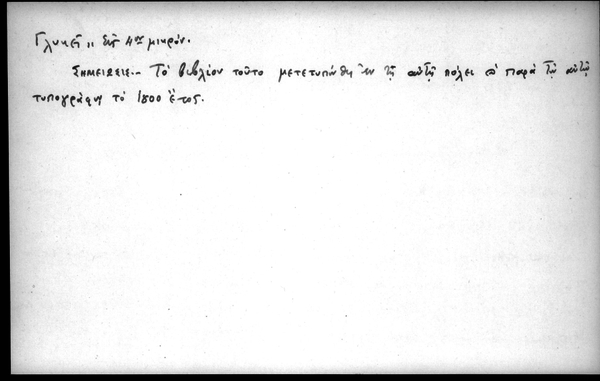 Γλυκεῖ „ εἰς 4ον μικρόν.
Σημείωσις.- Τό βιβλίον τοῦτο μετετυπώθη ἐν τῇ αὐτῇ πόλει καί παρά τῷ αὐτῷ
τυπογράφῳ τό 1800 ἔτος.